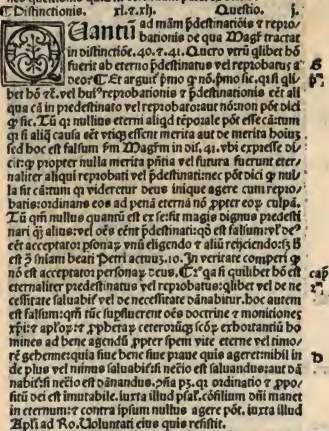 ¶Distinctionis. xl.⁊.xlj. Questio. j.
QUantũ ad mãm p̃destinatiõis ⁊ repro/
bationis de qua Magr̃ tractat
in distinctiõe.40.⁊.41. Quero vtrũ qlibet hõ
fuerit ab eterno p̃destinatus vel reprobatus a
deo: ¶Et arguit̃ pmo ꝙ nõ. pmo sic. qꝛ si qli
bet hõ ⁊c. vel huiꝰ reprobationis ⁊ p̃destinatiõis eẽt ali
qua cã in predestinato vel reprobato: aut nõ: non põt dici
ꝙ sic. Tũ qꝛ nullius eterni aliqd tẽporale põt esse cã: tum
qꝛ si aliq̃ causa eẽt vtiqꝫ essent merita aut de merita hoius
sed hoc est falsum ꝑm Magr̃m in dis. 41. vbi expresse di
cit: ꝙ propter nulla merita p̃ntia vel futura fuerunt eter/
naliter aliqui reprobati vel p̃destinati: nec põt dici ꝙ nul/
la sit cã: tum qꝛ videretur deus inique agere cum repro/
batis: ordinans eos ad penã eternã nõ ꝓpter eoꝝ culpã.
Tũ qm̃ nullus quantũ est ex se: sit magis dignus predesti
nari q̃ alius: vel oẽs eẽnt p̃destinati: qḋ est falsum: vl̃ deꝰ
eẽt acceptator ꝑsonaꝝ vnũ eligendo ⁊ aliũ reijciendo: sꝫ B
est ꝯ̃ sñiam beati Petri actuũ.10. In veritate comperi ꝙ
nõ est acceptator personaꝝ deus. ¶2ᵃ qꝛ si quilibet hõ est
eternaliter predestinatus vel reprobatus: qlibet vel de ne
cessitate saluabit̃ vel de necessitate dãnabitur. hoc autem
est falsum: qm̃ tũc supfluerent oẽs doctrine ⁊ monitiones
xp̃i: ⁊ apl'oꝝ: ⁊ ꝓphetaꝝ ceterorũqꝫ scõꝝ exhortantiũ ho
mines ad bene agendũ ꝓpter spem vite eterne vel timo/
rẽ gehenne: quia siue bene siue praue quis ageret: nihil in
de plus vel minus saluabit̃: si nec̃io est saluandus: aut dã
nabit̃: si nec̃io est dãnandus. ꝯña pꝫ. qꝛ ordinatio ⁊ ꝓpo/
sitũ dei est ĩmutabile. iuxta illud psal'. cõsilium dñi manet
in eternum: ⁊ contra ipsum nullus agere põt. iuxta illud
Apl'i ad Ro. Uoluntati eius quis resistit.